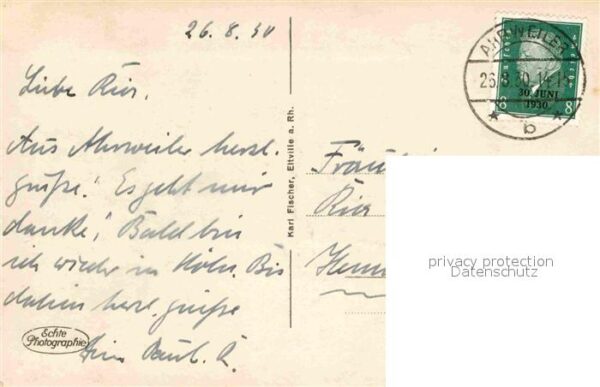 26.8.30
Liebe Ria,
Aus Ahrweiler herzl.
Grüße! Es geht mir
danke! Bald bin
ich wieder in Köln. Bis
dahin herzl. Grüße
Paul.
Echte
Photographie
Karl Fischer, Eltville a. Rh.
AHRWEILER
26.8.30.14-1
b
30. JUNI
1930
8 8
Ria
privacy protection
Datenschutz